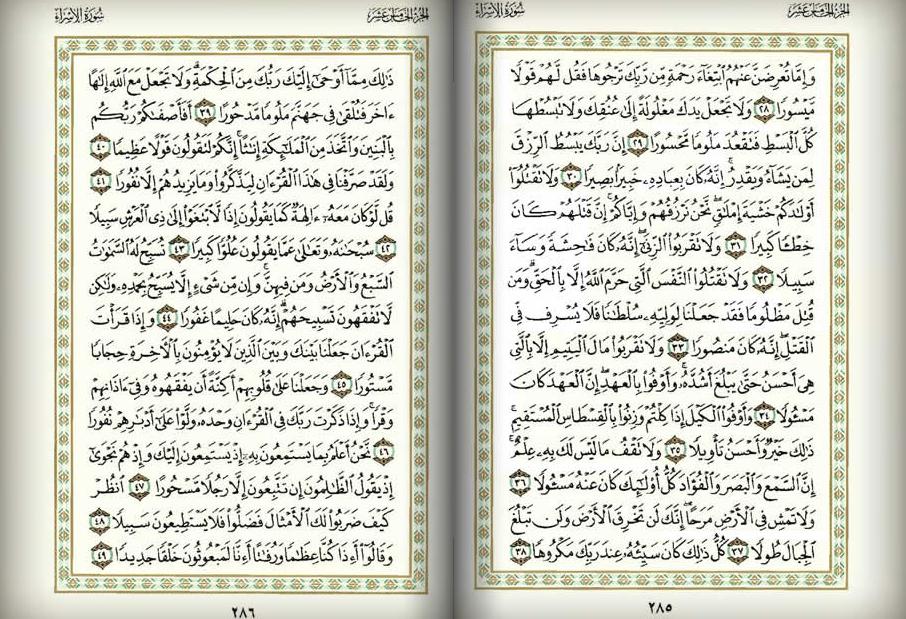 سُورَةُ الإِسْرَاءِ
الجُزْءُ الخَامِسَ عَشَرَ
وَإِمَّا تُعْرِضَنَّ عَنْهُمُ ٱبْتِغَآءَ رَحْمَةٍ مِّن رَّبِّكَ تَرْجُوهَا فَقُل لَّهُمْ قَوْلًا
مَّيْسُورًا ٢٨ وَلَا تَجْعَلْ يَدَكَ مَغْلُولَةً إِلَىٰ عُنُقِكَ وَلَا تَبْسُطْهَا
كُلَّ ٱلْبَسْطِ فَتَقْعُدَ مَلُومًا مَّحْسُورًا ٢٩ إِنَّ رَبَّكَ يَبْسُطُ ٱلرِّزْقَ
لِمَن يَشَآءُ وَيَقْدِرُ إِنَّهُۥ كَانَ بِعِبَادِهِۦ خَبِيرًۢا بَصِيرًا ٣٠ وَلَا تَقْتُلُوٓا۟
أَوْلَٰدَكُمْ خَشْيَةَ إِمْلَٰقٍ نَّحْنُ نَرْزُقُهُمْ وَإِيَّاكُمْ إِنَّ قَتْلَهُمْ كَانَ
خِطْـًٔا كَبِيرًا ٣١ وَلَا تَقْرَبُوا۟ ٱلزِّنَىٰٓ إِنَّهُۥ كَانَ فَٰحِشَةً وَسَآءَ
سَبِيلًا ٣٢ وَلَا تَقْتُلُوا۟ ٱلنَّفْسَ ٱلَّتِى حَرَّمَ ٱللَّهُ إِلَّا بِٱلْحَقِّ وَمَن
قُتِلَ مَظْلُومًا فَقَدْ جَعَلْنَا لِوَلِيِّهِۦ سُلْطَٰنًا فَلَا يُسْرِف فِّى
ٱلْقَتْلِ إِنَّهُۥ كَانَ مَنصُورًا ٣٣ وَلَا تَقْرَبُوا۟ مَالَ ٱلْيَتِيمِ إِلَّا بِٱلَّتِى
هِىَ أَحْسَنُ حَتَّىٰ يَبْلُغَ أَشُدَّهُۥ وَأَوْفُوا۟ بِٱلْعَهْدِ إِنَّ ٱلْعَهْدَ كَانَ
مَسْـُٔولًا ٣٤ وَأَوْفُوا۟ ٱلْكَيْلَ إِذَا كِلْتُمْ وَزِنُوا۟ بِٱلْقِسْطَاسِ ٱلْمُسْتَقِيمِ
ذَٰلِكَ خَيْرٌ وَأَحْسَنُ تَأْوِيلًا ٣٥ وَلَا تَقْفُ مَا لَيْسَ لَكَ بِهِۦ عِلْمٌ
إِنَّ ٱلسَّمْعَ وَٱلْبَصَرَ وَٱلْفُؤَادَ كُلُّ أُو۟لَٰٓئِكَ كَانَ عَنْهُ مَسْـُٔولًا ٣٦
وَلَا تَمْشِ فِى ٱلْأَرْضِ مَرَحًا إِنَّكَ لَن تَخْرِقَ ٱلْأَرْضَ وَلَن تَبْلُغَ
ٱلْجِبَالَ طُولًا ٣٧ كُلُّ ذَٰلِكَ كَانَ سَيِّئُهُۥ عِندَ رَبِّكَ مَكْرُوهًا ٣٨
٢٨٥
سُورَةُ الإِسْرَاءِ
الجُزْءُ الخَامِسَ عَشَرَ
ذَٰلِكَ مِمَّآ أَوْحَىٰٓ إِلَيْكَ رَبُّكَ مِنَ ٱلْحِكْمَةِ وَلَا تَجْعَلْ مَعَ ٱللَّهِ إِلَٰهًا
ءَاخَرَ فَتُلْقَىٰ فِى جَهَنَّمَ مَلُومًا مَّدْحُورًا ٣٩ أَفَأَصْفَىٰكُمْ رَبُّكُم
بِٱلْبَنِينَ وَٱتَّخَذَ مِنَ ٱلْمَلَٰٓئِكَةِ إِنَٰثًا إِنَّكُمْ لَتَقُولُونَ قَوْلًا عَظِيمًا ٤٠
وَلَقَدْ صَرَّفْنَا فِى هَٰذَا ٱلْقُرْءَانِ لِيَذَّكَّرُوا۟ وَمَا يَزِيدُهُمْ إِلَّا نُفُورًا ٤١
قُل لَّوْ كَانَ مَعَهُۥٓ ءَالِهَةٌ كَمَا يَقُولُونَ إِذًا لَّٱبْتَغَوْا۟ إِلَىٰ ذِى ٱلْعَرْشِ سَبِيلًا
٤٢ سُبْحَٰنَهُۥ وَتَعَٰلَىٰ عَمَّا يَقُولُونَ عُلُوًّا كَبِيرًا ٤٣ تُسَبِّحُ لَهُ ٱلسَّمَٰوَٰتُ
ٱلسَّبْعُ وَٱلْأَرْضُ وَمَن فِيهِنَّ وَإِن مِّن شَىْءٍ إِلَّا يُسَبِّحُ بِحَمْدِهِۦ وَلَٰكِن
لَّا تَفْقَهُونَ تَسْبِيحَهُمْ إِنَّهُۥ كَانَ حَلِيمًا غَفُورًا ٤٤ وَإِذَا قَرَأْتَ
ٱلْقُرْءَانَ جَعَلْنَا بَيْنَكَ وَبَيْنَ ٱلَّذِينَ لَا يُؤْمِنُونَ بِٱلْءَاخِرَةِ حِجَابًا
مَّسْتُورًا ٤٥ وَجَعَلْنَا عَلَىٰ قُلُوبِهِمْ أَكِنَّةً أَن يَفْقَهُوهُ وَفِىٓ ءَاذَانِهِمْ
وَقْرًا وَإِذَا ذَكَرْتَ رَبَّكَ فِى ٱلْقُرْءَانِ وَحْدَهُۥ وَلَّوْا۟ عَلَىٰٓ أَدْبَٰرِهِمْ نُفُورًا
٤٦ نَّحْنُ أَعْلَمُ بِمَا يَسْتَمِعُونَ بِهِۦٓ إِذْ يَسْتَمِعُونَ إِلَيْكَ وَإِذْ هُمْ نَجْوَىٰٓ
إِذْ يَقُولُ ٱلظَّٰلِمُونَ إِن تَتَّبِعُونَ إِلَّا رَجُلًا مَّسْحُورًا ٤٧ ٱنظُرْ
كَيْفَ ضَرَبُوا۟ لَكَ ٱلْأَمْثَالَ فَضَلُّوا۟ فَلَا يَسْتَطِيعُونَ سَبِيلًا ٤٨
وَقَالُوٓا۟ أَءِذَا كُنَّا عِظَٰمًا وَرُفَٰتًا أَءِنَّا لَمَبْعُوثُونَ خَلْقًا جَدِيدًا ٤٩
٢٨٦